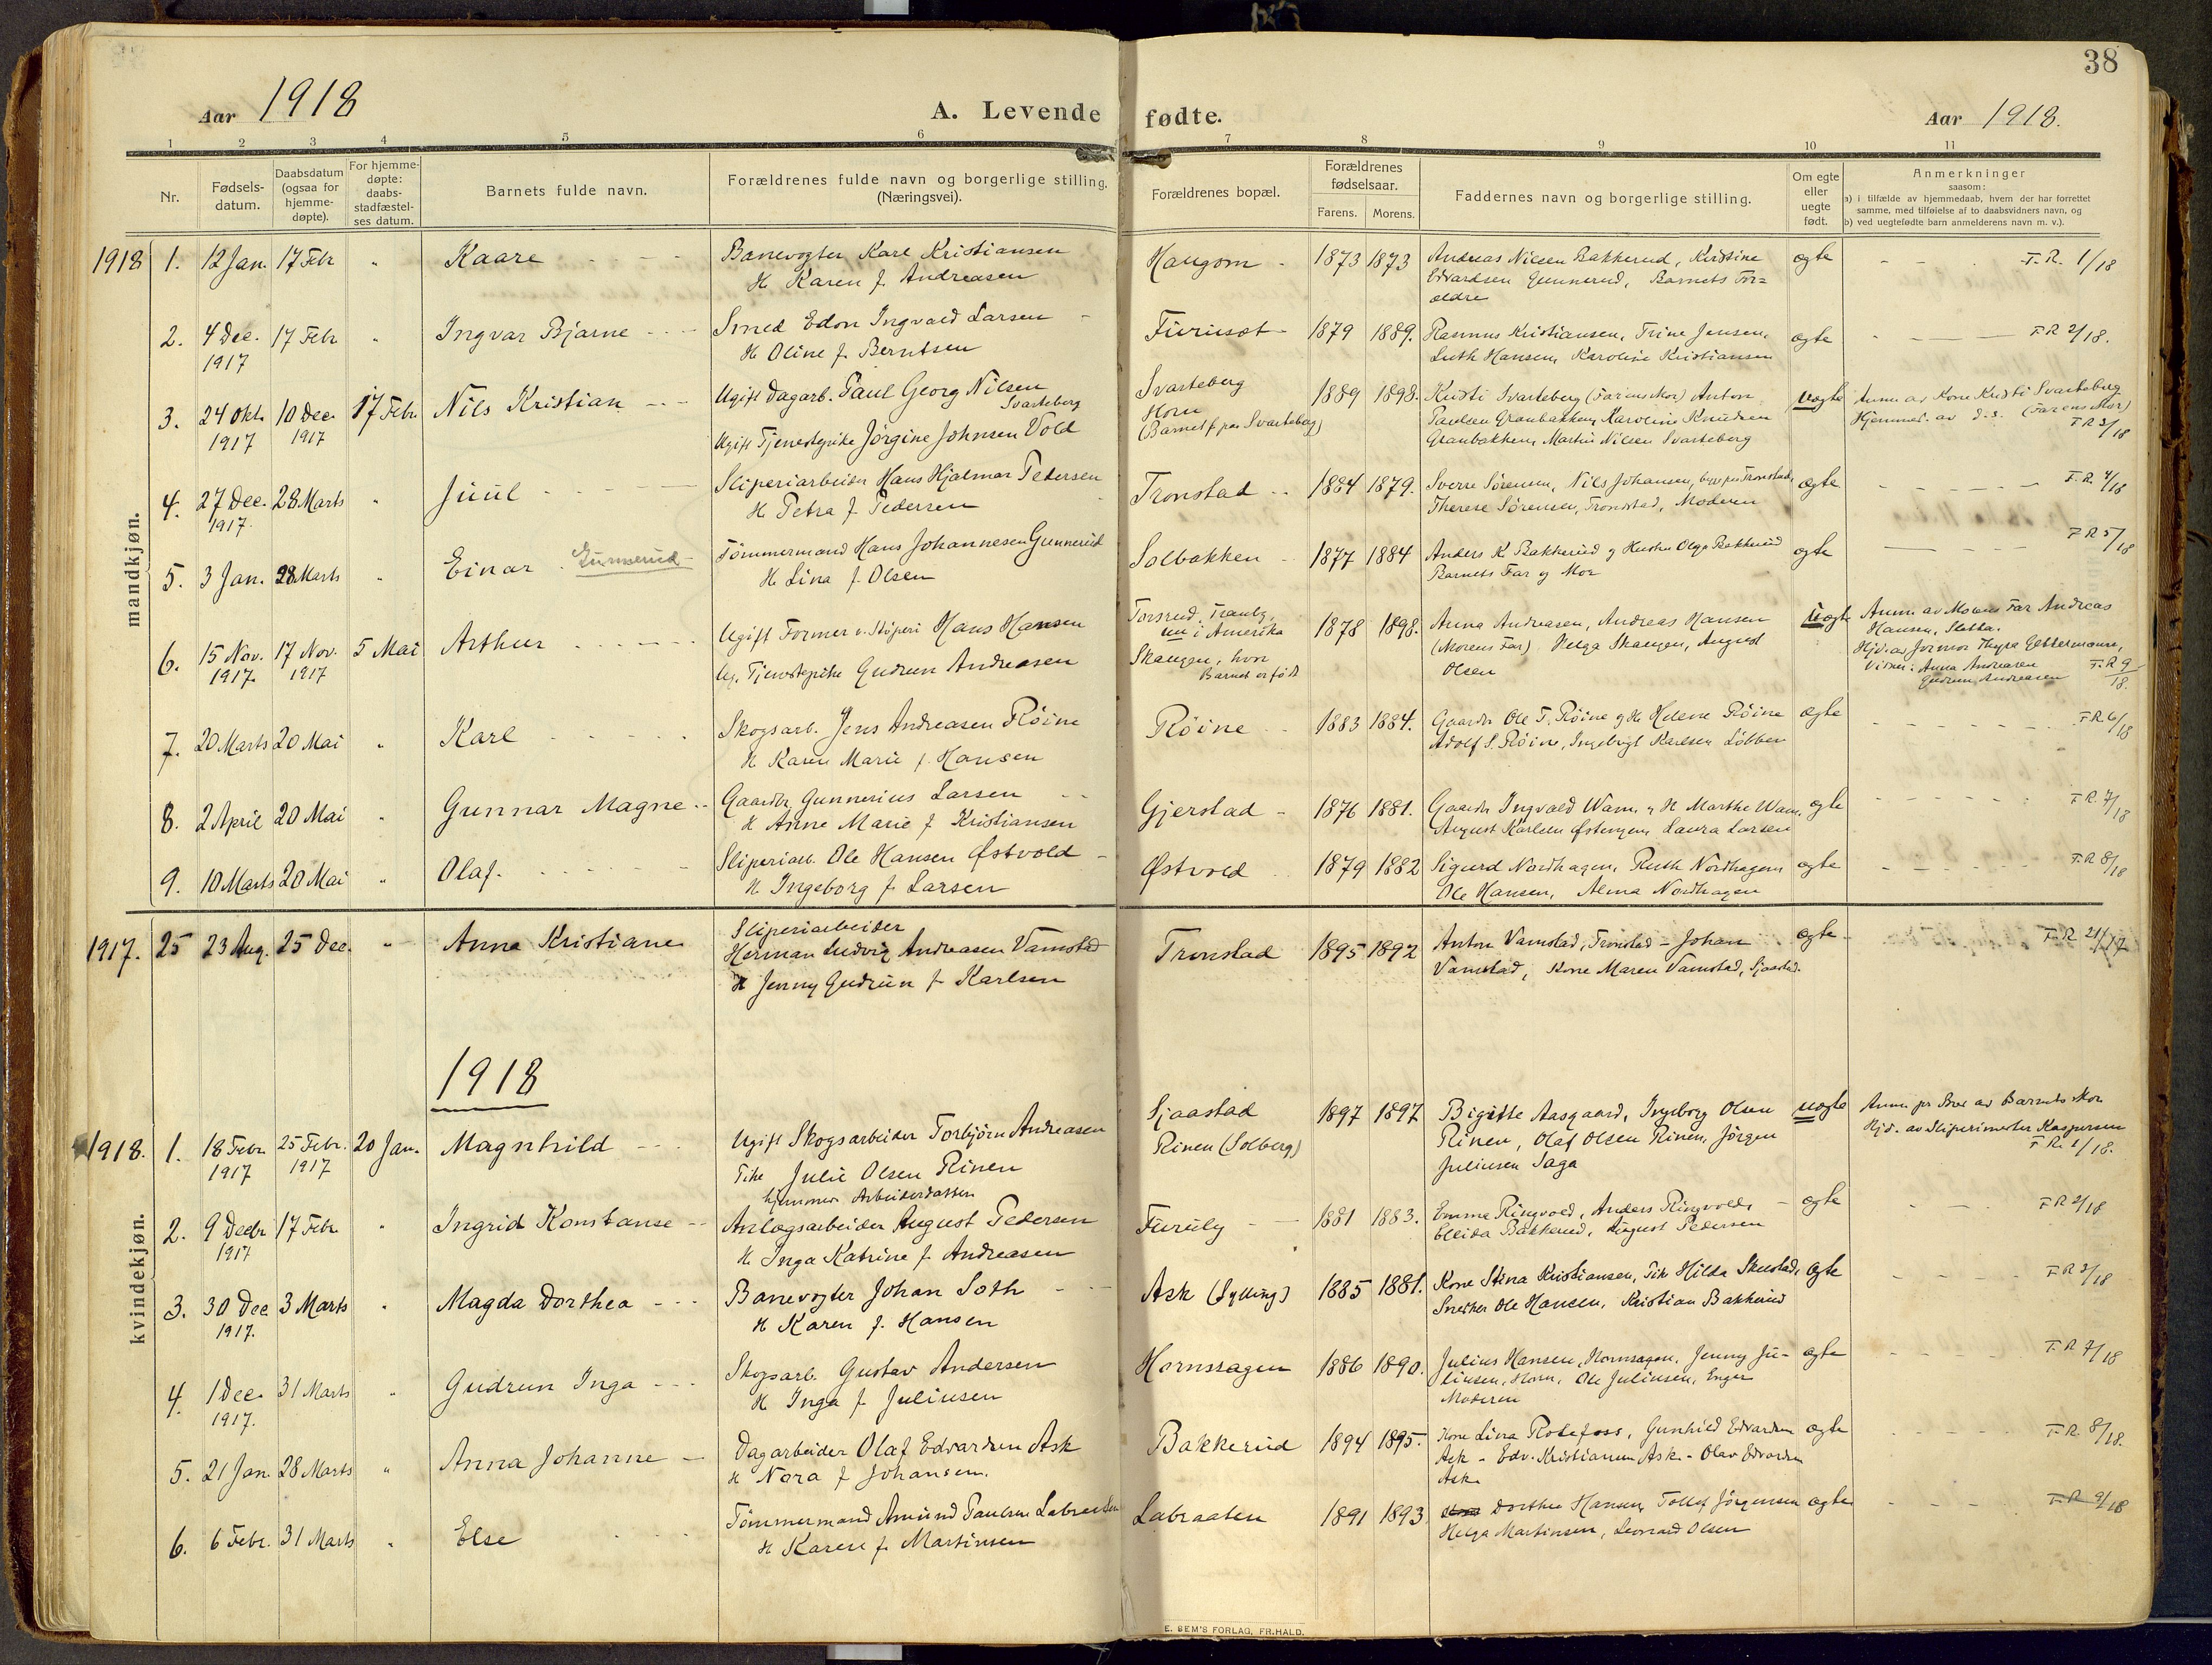 38
Aar 1918
A. Levende fødte.
Aar 1918.
1 2 3 4 5 6 7 8 9 10 11
Nr.
Fødsels-
datum.
Daabsdatum
(ogsaa for
hjemme-
døpte).
For hjemme-
døpte:
daabs-
stadfæstel-
ses datum.
Barnets fulde navn.
Forældrenes fulde navn og borgerlige stilling.
(Næringsvei).
Forældrenes bopæl.
Forældrenes
fødselsaar.
Farens. Morens.
Faddernes navn og borgerlige stilling.
Om egte
eller
uegte
født.
Anmerkninger
saasom:
a) i tilfælde av hjemmedaab, hvem der har forrettet
samme, med tilføielse af to daabsvidners navn, og
b) ved uegtefødte barn anmelderens navn m. v.).
mandkjøn.
1918 1. 12 Jan. 17 Febr " Kaare Banevogter Karl Kristiansen Haugom 1873 1873 Andreas Nilsen Bakkerud, Kristine egte F.R. 1/18
H Karen f. Andreasen Edvardsen Gunnerud, Barnets For=
ældre
2. 4 Dec. 17 Febr " Ingvar Bjarne Smed Edon Ingvald Larsen Furuset 1879 1889. Rasmus Kristiansen, Trine Jensen, egte F R 2/18.
1917 H Oline f. Berntsen Luth Hansen, Karoline Kristiansen
3. 24 Okt. 10 Dec. 17 Febr Nils Kristian Ugift Dagarb. Paul Georg Nilsen Svarteberg 1889 1898. Kristi Svarteberg (Farens Mor) Anton uegte Anm. av Kone Kristi Svarteberg
1917 1917 Svarteberg Horn Paulsen Granbakken, Karoline Knudsen Hjemmed. av d.s. (Farens Mor)
Ugift Tjenestepike Jørgine Johnsen Vold (Barnet f paa Svarteberg) Granbakken, Martin Nilsen Svarteberg F R 3/18
4. 27 Dec. 28 Marts " Juul Sliperiarbeider Hans Hjalmar Pedersen Tronstad 1884 1879. Sverre Sørensen, Nils Johansen, begge paa Tronstad, egte F.R. 4/18
1917. H Petra f Pedersen Therese Sørensen, Tronstad, Moderen
5. 3 Jan. 28 Marts " Einar Gunnerud Tømmermand Hans Johannesen Gunnerud Solbakken 1877 1884 Anders K Bakkerud og Hustru Olga Bakkerud egte F R 5/18
H Lina f Olsen Barnets Far og Mor
6. 15 Nov. 17 Nov. 5 Mai Arthur Ugift Former v. Støperi Hans Hansen Torsrud, Tranby, 1878 1898. Anna Andreasen, Andreas Hansen uegte Anm. av Morens Far Andreas
1917. 1917 nu i Amerika (Morens Far) Helga Skaugen, August Hansen, Sletta.
Ug. Tjenestepike Gudrun Andreasen Skaugen, hvor Olsen Hjd. av Jormor Thyra Gettermann,
Barnet er født Vidner: Anna Andreasen F.R 9/18.
Gudrun Andreasen
7. 20 Marts 20 Mai " Karl Skogsarb. Jens Andreasen Røine Røine 1883 1884. Gaardbr Ole T. Røine og H Helene Røine egte F R 6/18
H Karen Marie f. Hansen Adolf S. Røine, Ingebrigt Karlsen Løbben
8. 2 April 20 Mai " Gunnar Magne Gaardbr. Gunnerius Larsen Gjerstad 1876 1881. Gaardbr Ingvald Wam og H Marthe Wam, egte F R. 7/18
H Anne Marie f Kristiansen August Karlsen Østengen, Laura Larsen
9. 10 Marts 20 Mai " Olaf Sliperiarb. Ole Hansen Østvold Østvold 1879 1882 Sigurd Nordhagen, Ruth Nordhagen egte F.R 8/18
H Ingeborg f Larsen Ole Hansen, Alma Nordhagen
1917. 25 23 Aug. 25 Dec. " Anna Kristiane Sliperiarbeider
Herman Ludvig Andreasen Vamstad Tronstad 1895 1892 Anton Vamstad, Tronstad - Johan egte F R 21/17
H Jenny Gudrun f Karlsen Vamstad, Kone Maren Vamstad, Sjaastad.
1918
kvindekjøn.
1918. 1. 18 Febr 25 Febr. 20 Jan. Magnhild Ugift Skogsarbeider Torbjørn Andreasen Sjaastad 1897 1897 Bigitte Aasgaard, Ingeborg Olsen uegte Anm. pr Brev av Barnets Mor
1917 1917 Pike Julie Olsen Rinen Rinen (Solberg) Rinen, Olaf Olsen Rinen, Jørgen Hjd. av Sliperimester Kaspersen
hjemmev. Arbeiderdatter Juliusen Saga F R. 1/18.
2. 9 Decbr 17 Febr " Ingrid Konstanse Anlægsarbeider August Pedersen Furuly 1881 1883. Emma Ringvold, Anders Ringvold, egte F R 2/18
1917 H. Inga Katrine f. Andreasen Elida Bakkerud, August Pedersen
3. 30 Dec 3 Marts " Magda Dorthea Banevogter Johan Soth Ask (Sylling) 1885 1881. Kone Stina Kristiansen, Pike Hilda Skustad, egte F R 3/18
1917. H Karen f. Hansen Snekker Ole Hansen, Kristian Bakkerud
4. 1 Dec. 31 Marts " Gudrun Inga Skogsarb. Gustav Andersen Hornssagen 1886 1890. Julius Hansen, Hornsagen, Jenny Ju- egte F R 7/18
1917. H Inga f Juliusen liusen, Horn, Ole Juliusen, Enger
Moderen
5. 21 Jan. 28 Marts " Anna Johanne Dagarbeider Olaf Edvardsen Ask Bakkerud 1894 1895. Kone Lina Rosefoss, Gunhild Edvardsen egte F R. 8/18.
H Nora f Johansen. Ask - Edv. Kristiansen Ask - Olav Edvardsen
Ask
6. 6 Febr. 31 Marts " Else Tømmermand Amund Paulsen Labraaten Labraaten 1891 1893 Dorthea Hansen, Tollef Jørgensen egte F R 9/18
H Karen f. Martinsen Helga Martinsen, Leonard Olsen
E. SEM'S FORLAG, FR.HALD.